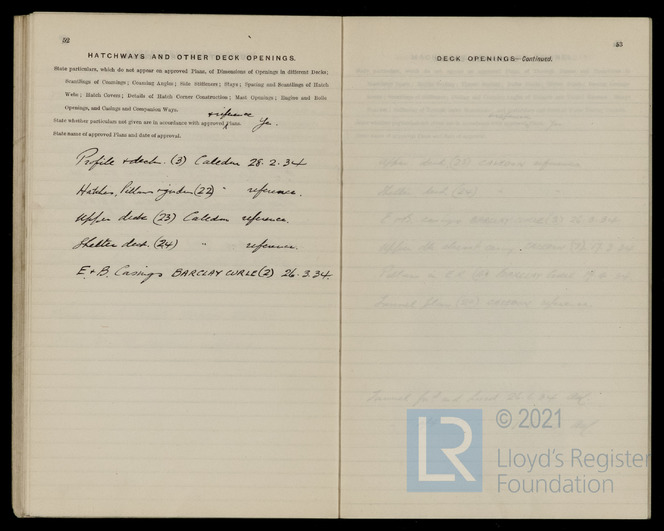 52
HATCHWAYS AND OTHER DECK OPENINGS.
State particulars, which do not appear on approved Plans, of Dimensions of Openings in different Decks;
Scantlings of Coamings; Coaming Angles; Side Stiffeners; Stays; Spacing and Scantlings of Hatch
Webs; Hatch Covers; Details of Hatch Corner Construction; Mast Openings; Engine and Boiler
Openings, and Casings and Companion Ways.
& reference
State whether particulars not given are in accordance with approved Plans. Yes.
State name of approved Plan and date of approval.
Profile & deck. (3) Caledon 28.2.34
Hatches, Pillars & girders (22) " reference.
Upper deck (23) Caledon reference.
Shelter deck. (24) " reference.
E & B. Casings BARCLAY CURLE (2) 26.3.34.
53
DECK OPENINGS—Continued.
LR
© 2021
Lloyd's Register
Foundation